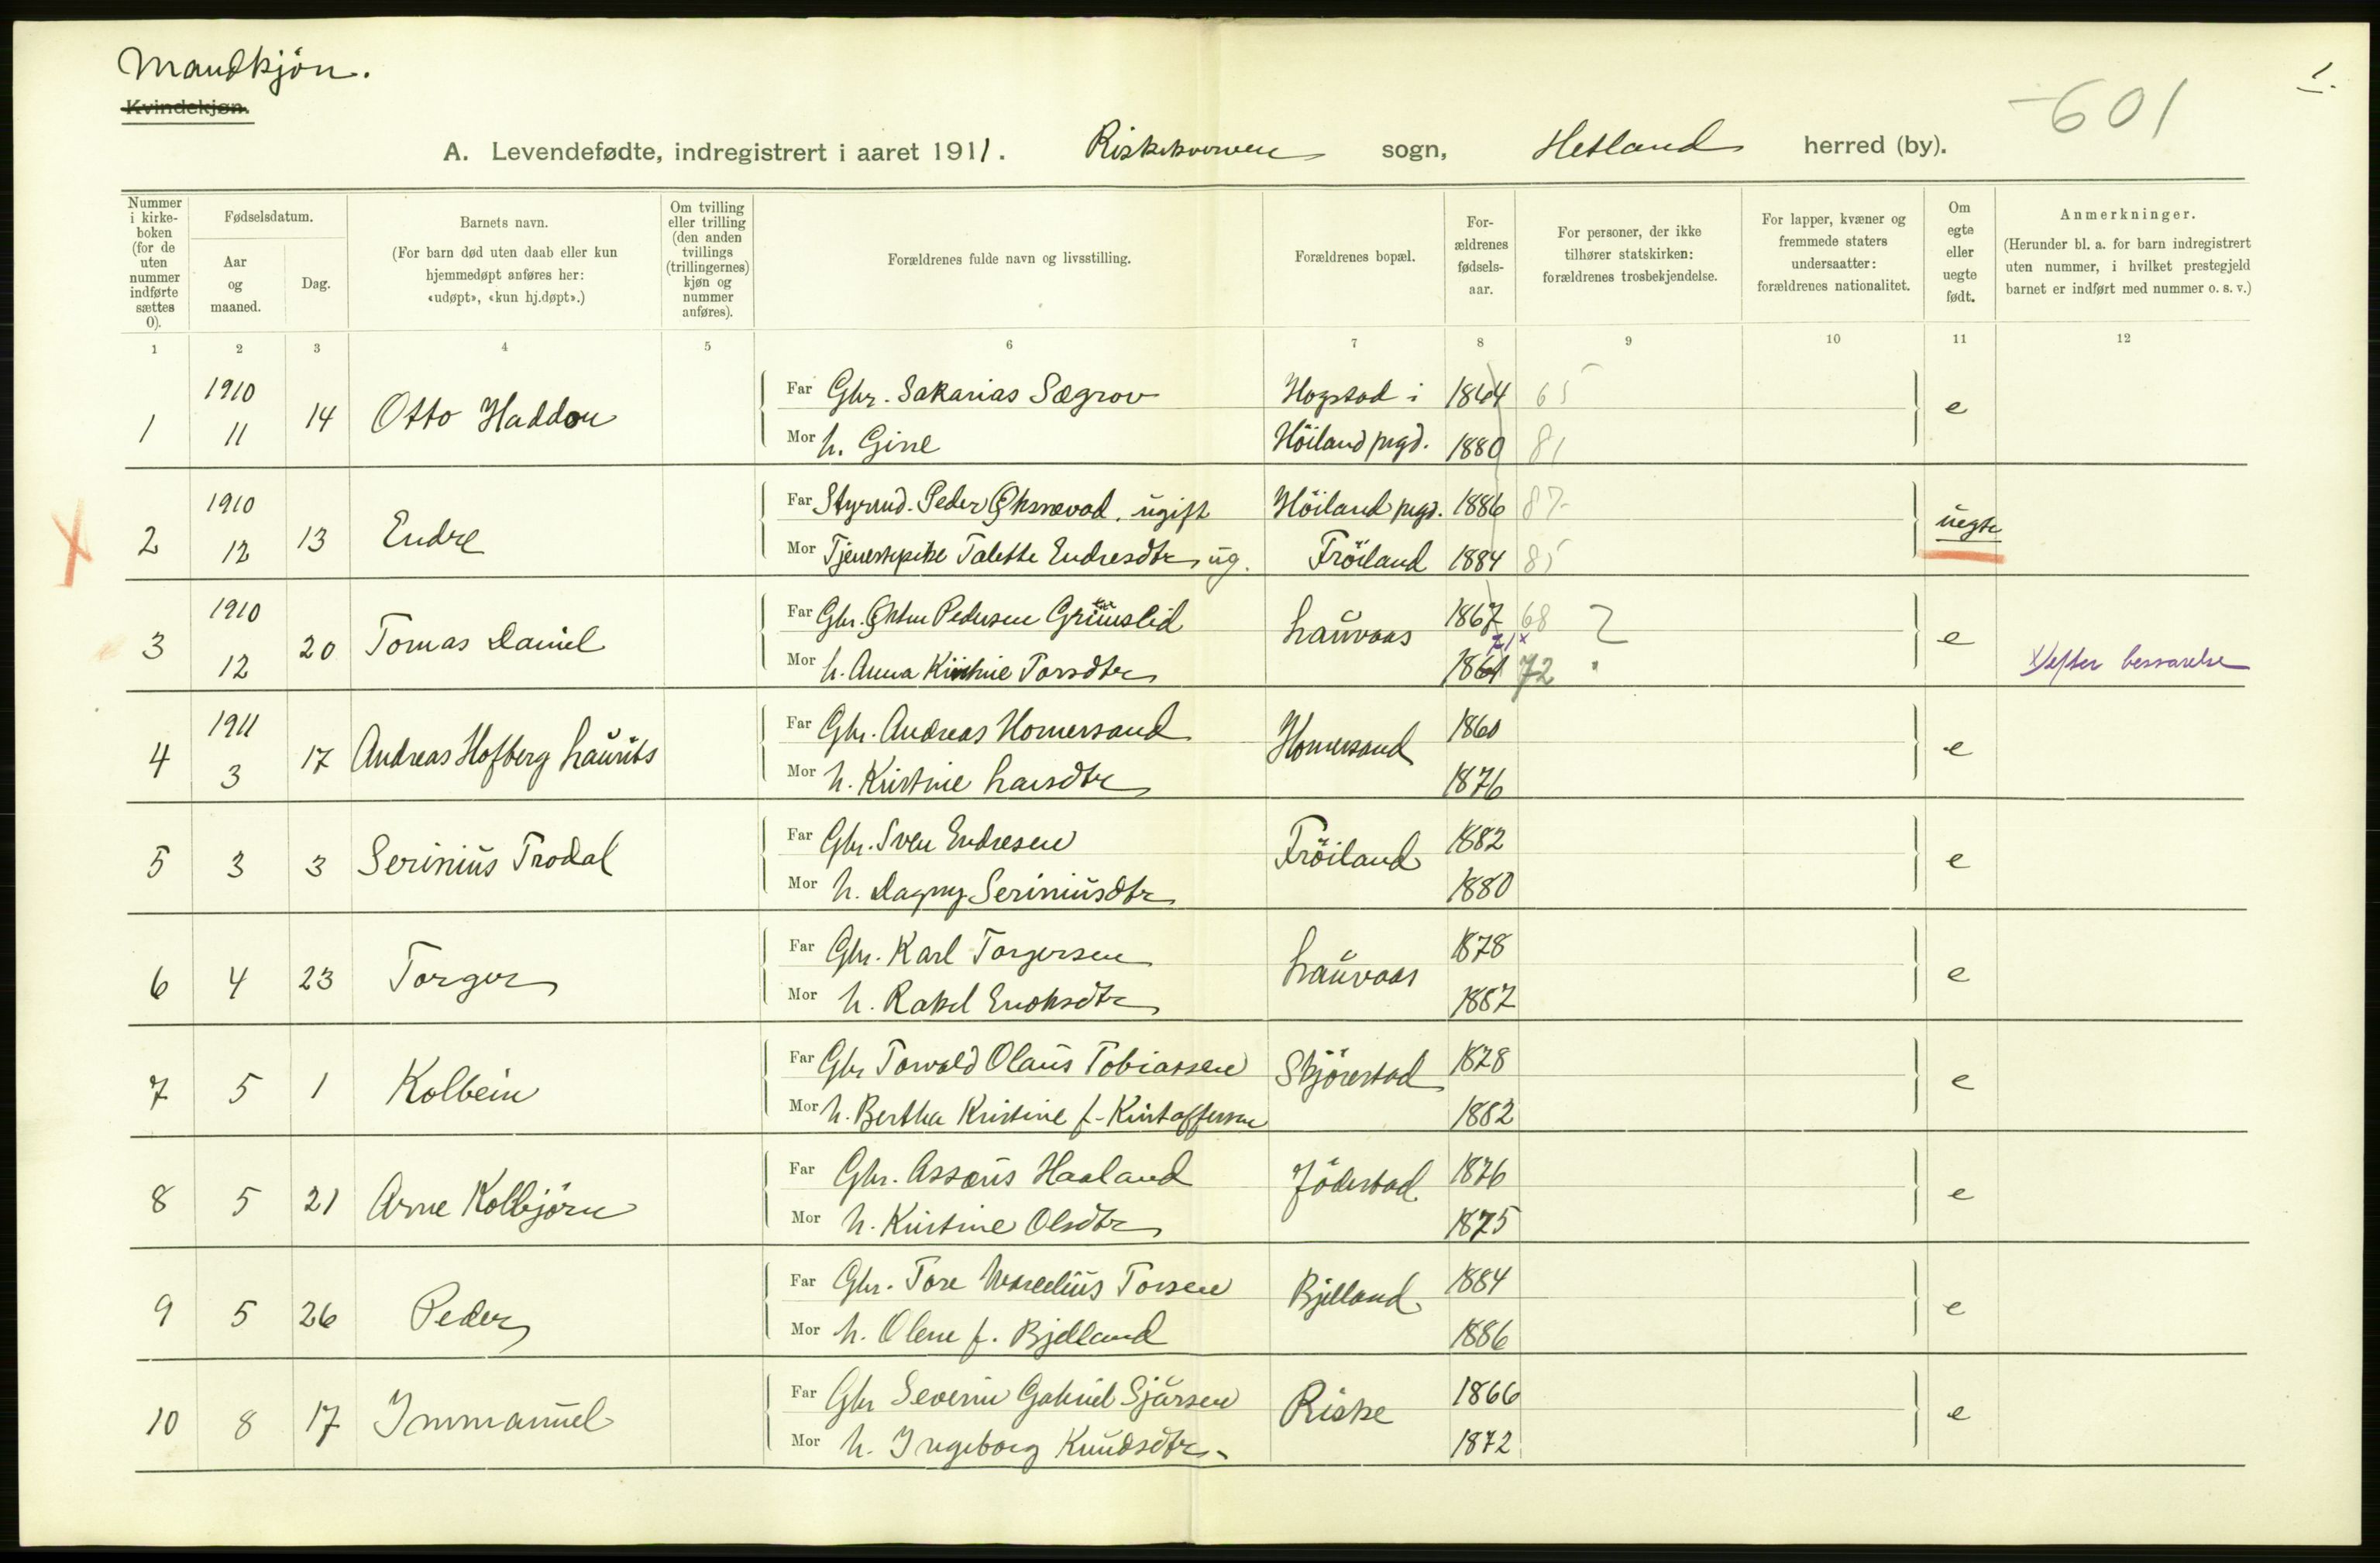 Mandkjön.
1.
Kvindekjøn.
601
A. Levendefødte, indregistrert i aaret 1911. Riskekvervens sogn, Hetland herred (by).
Nummer i kirkeboken (for de uten nummer indførte sættes 0).
Fødselsdatum.
Aar og maaned.
Dag.
Barnets navn.
(For barn død uten daab eller kun hjemmedøpt anføres her: «udøpt», «kun hj.døpt».)
Om tvilling eller trilling (den anden tvillings (trillingernes) kjøn og nummer anføres).
Forældrenes fulde navn og livsstilling.
Forældrenes bopæl.
Forældrenes fødselsaar.
For personer, der ikke tilhører statskirken: forældrenes trosbekjendelse.
For lapper, kvæner og fremmede staters undersaatter: forældrenes nationalitet.
Om egte eller uegte født.
Anmerkninger.
(Herunder bl. a. for barn indregistrert uten nummer, i hvilket prestegjeld barnet er indført med nummer o. s. v.)
1 2 3 4 5 6 7 8 9 10 11 12
1 1910 11 14 Otto Haddon Far Gbr. Sakarias Sægrov Hogstad i 1864 65 e
Mor h. Gine Höiland prgd. 1880 81
2 1910 12 13 Endre Far Styrmd. Peder Øksnevad, ugift Höiland prgd. 1886 87 uegte
Mor Tjenestepike Talette Endresdtr ug. Fröiland 1884 85
3 1910 12 20 Tomas Daniel Far Gbr. Pedersen Lauvaas 1867 68 e
71x
Mor h. Anna Torsdtr 1861 72 x)efter besvarelse
4 1911 3 17 Andreas Hofberg Laurits Far Gbr. Andreas Homersand Homersand 1860 e
Mor h. Kristine Larsdtr 1876
5 3 3 Serinius Trodal Far Gbr. Sven Endresen Fröiland 1882 e
Mor h. Dagny Seriniusdtr 1880
6 4 23 Torger Far Gbr. Karl Torgersen Lauvaas 1878 e
Mor h. Rakel Enoksdtr 1887
7 5 1 Kolbein Far Gbr Torvald Olaus Tobiassen Skjörestad 1878 e
Mor h. Bertha Kristine f. Kristoffersen 1882
8 5 21 Arne Kolbjörn Far Gbr. Assæus Haaland Jödestad 1876 e
Mor h. Kristine Olsdtr 1875
9 5 26 Peder Far Gbr. Tore Marelius Torsen Bjelland 1884 e
Mor h. Olene f. Bjelland 1886
10 8 17 Immanuel Far Gbr Severin Gabriel Sjursen Riske 1866 e
Mor h. Ingeborg Knudsdtr 1872